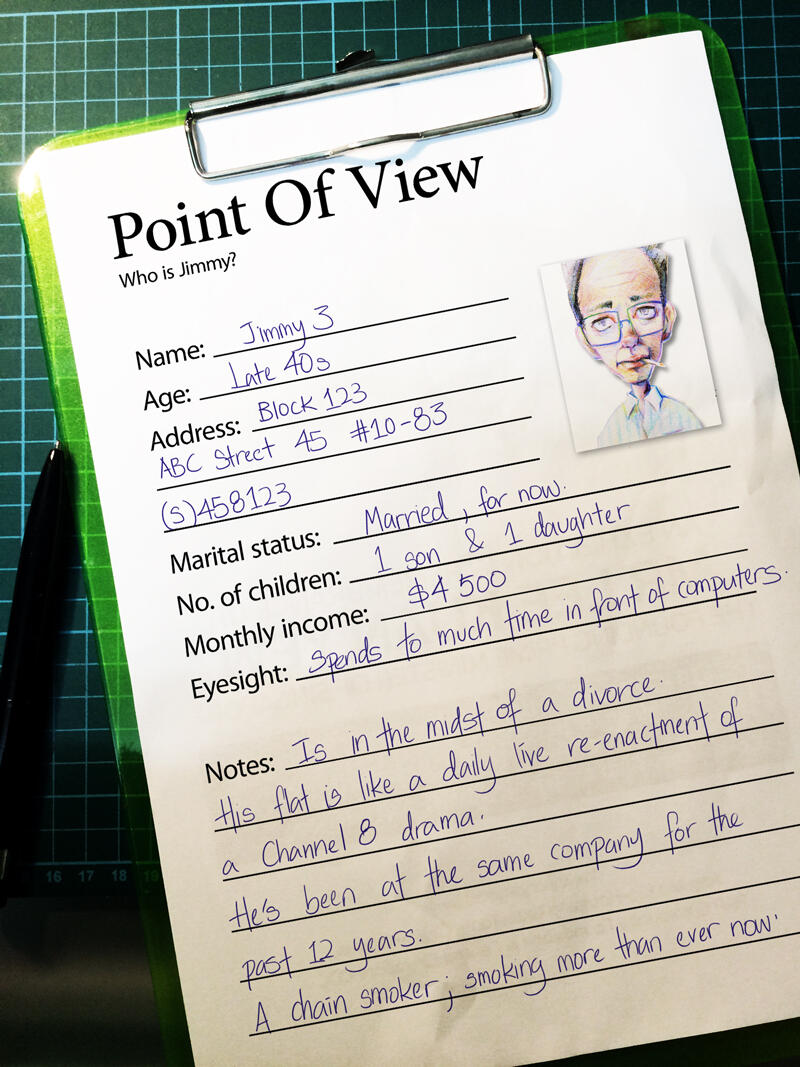 Point Of View
Who is Jimmy?
Name: Jimmy 3
Age: Late 40s
Address: Block 123
ABC Street 45 #10-83
(S)458123
Marital status: Married, for now.
No. of children: 1 son & 1 daughter
Monthly income: $4 500
Eyesight: Spends to much time in front of computers.
Notes: Is in the midst of a divorce.
His flat is like a daily live re-enactment of
a Channel 8 drama.
He's been at the same company for the
past 12 years.
A chain smoker; smoking more than ever now.
16 17 18 19